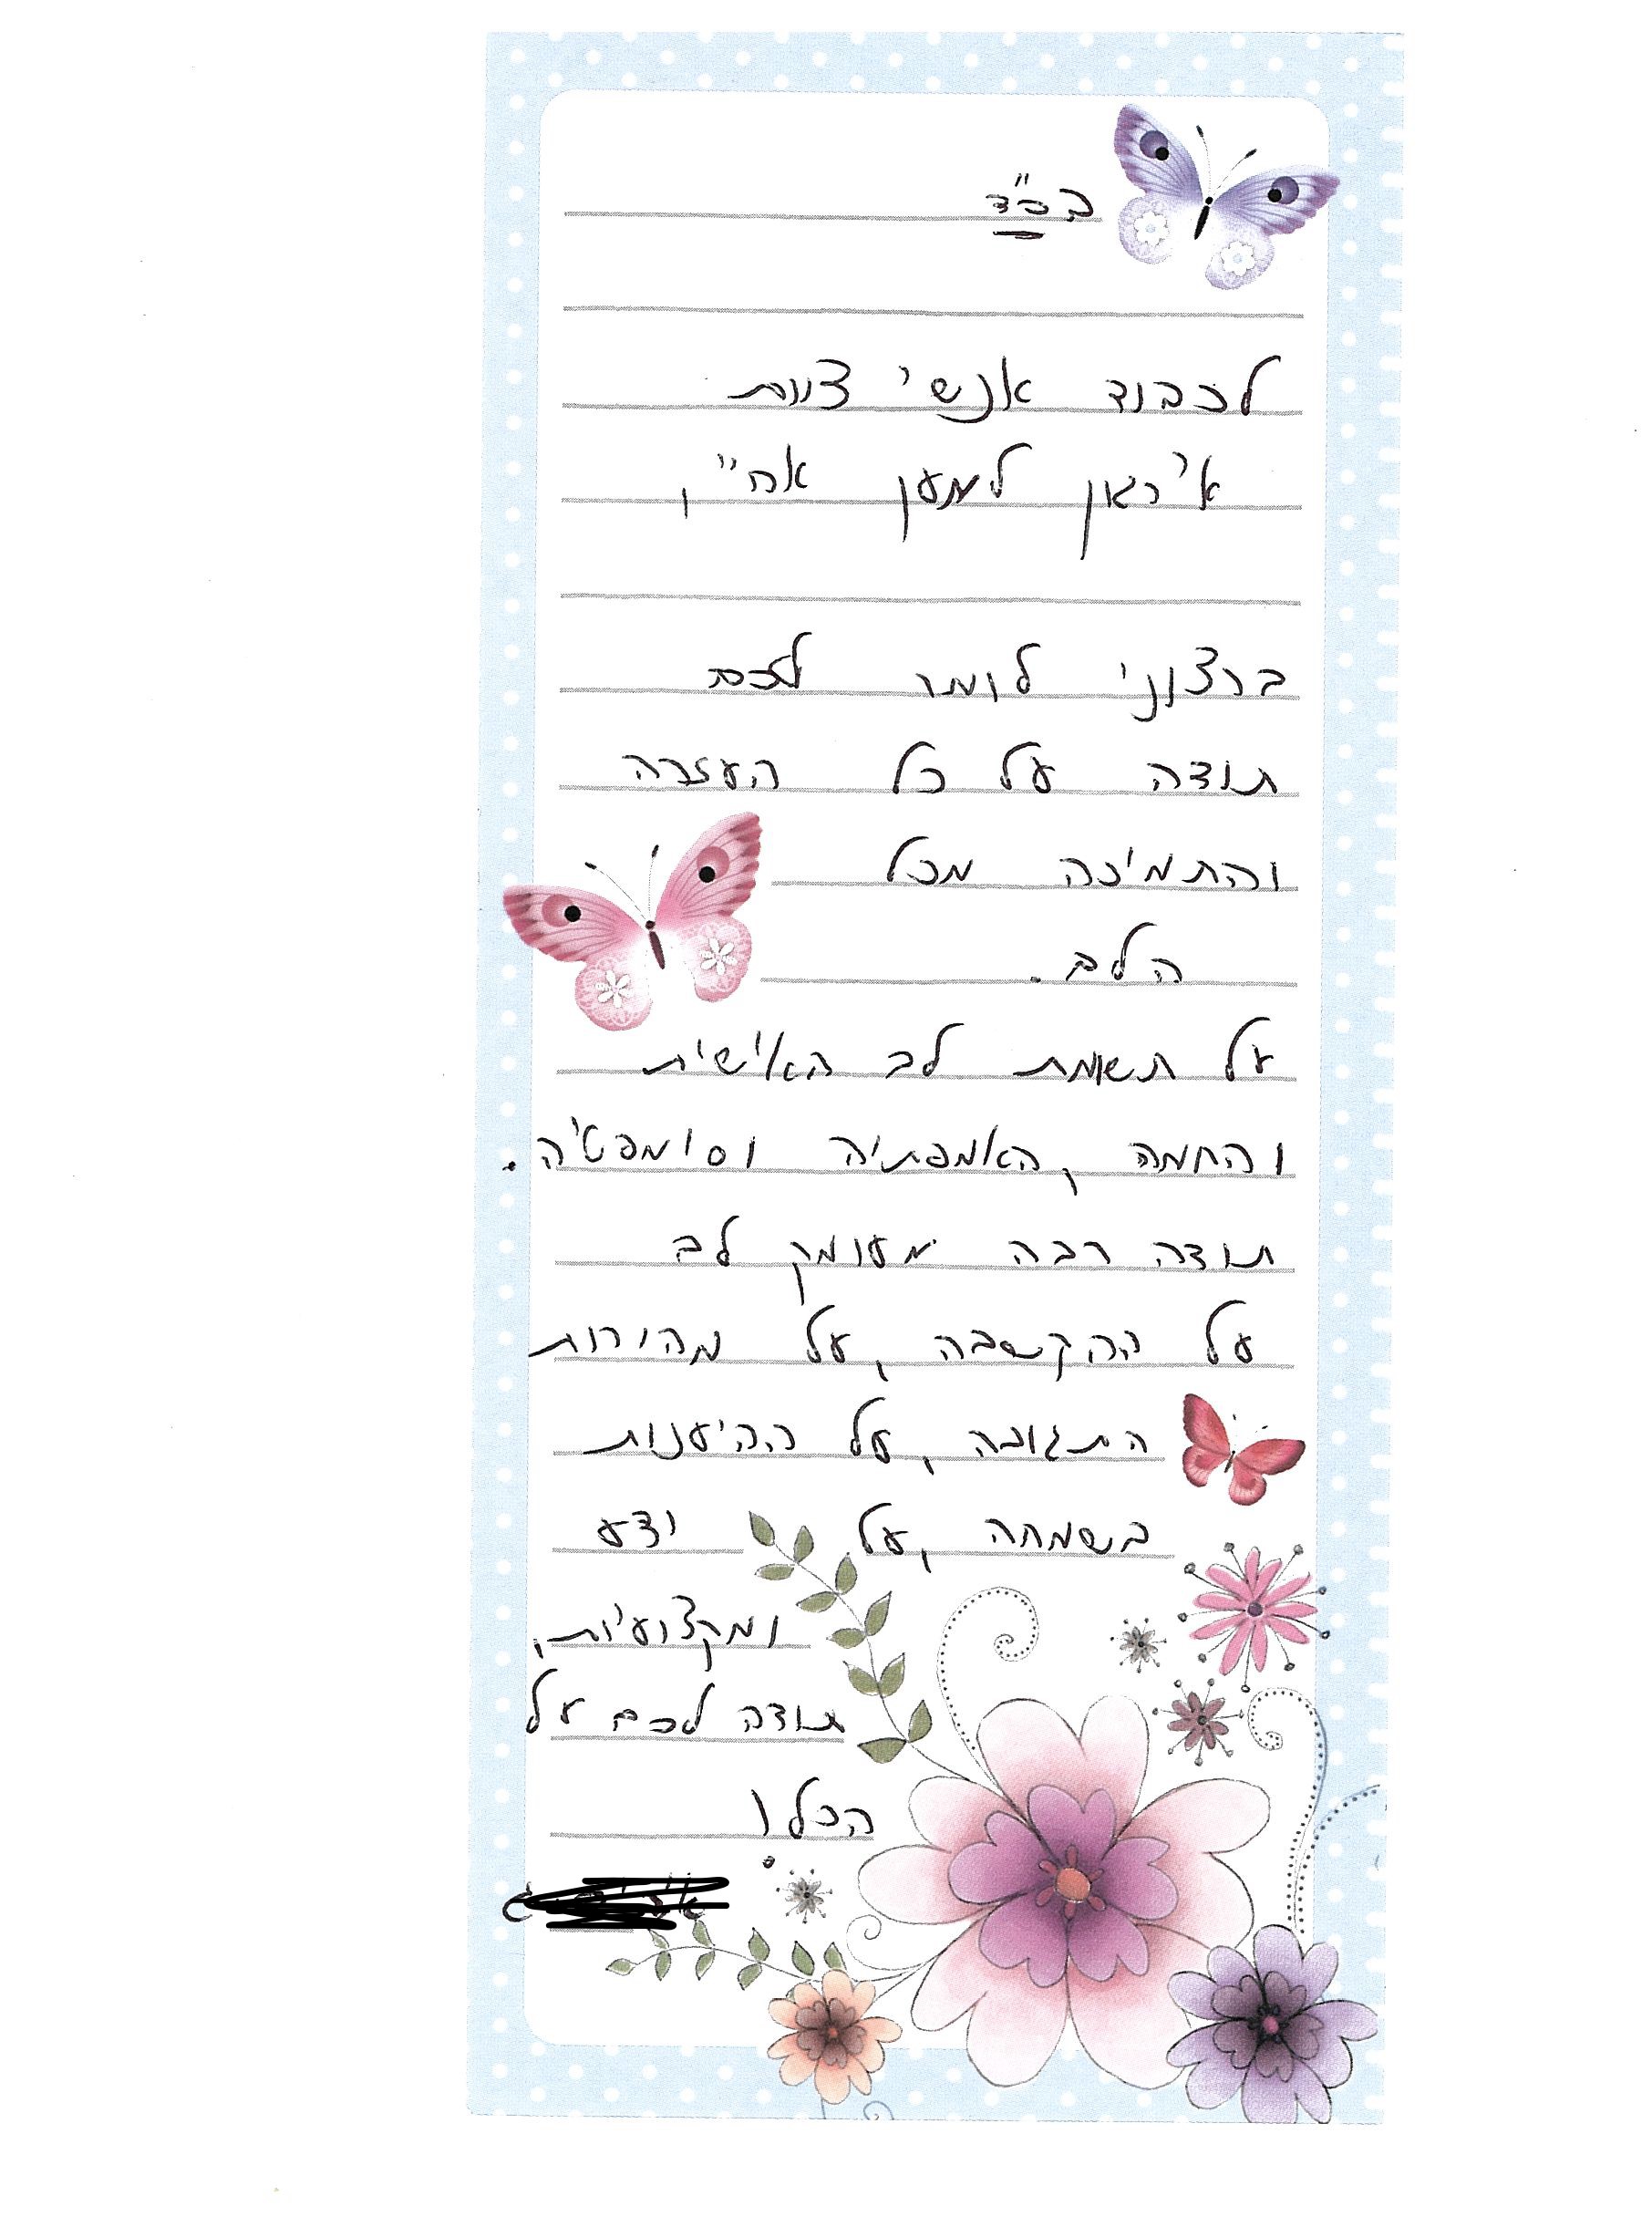 בס"ד
לכבוד אנשי צוות
אירגון למען אח"י,
ברצוני לומר לכם
תודה על כל העזרה
והתמיכה מכל
הלב.
על תשומת לב האישית
והחמה, האמפתיה וסימפטיה.
תודה רבה מעומק לב
על ההקשבה, על מהירות
התגובה, על ההיענות
בשמחה, על ידע
ומקצועיות,
תודה לכם על
הכל!